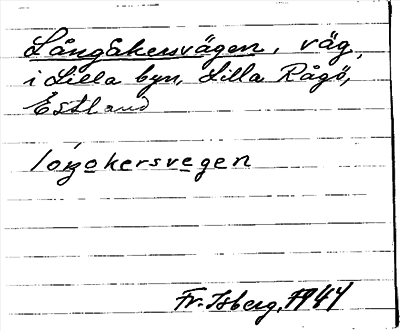 Långåkersvägen, väg,
i Lilla byn, Lilla Rågö,
Estland
Fr. Isberg, 1947